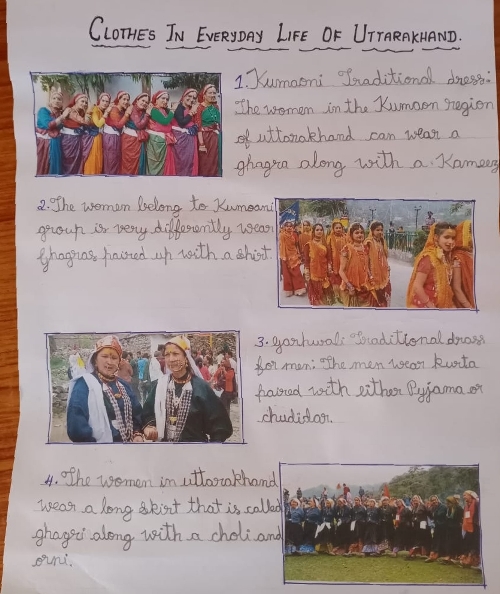 CLOTHES IN EVERYDAY LIFE OF UTTARAKHAND.
1. Kumaoni Traditional dress:
The women in the Kumaon region
of uttarakhand can wear a
ghagra along with a Kameez
2. The women belong to Kumoani
group is very differently wear
Ghagras paired up with a skirt.
3. Garhwali Traditional dress
for men: The men wear kurta
paired with either Pyjama or
chudidar.
4. The women in uttarakhand
wear a long skirt that is called
ghagri along with a choli and
orni.